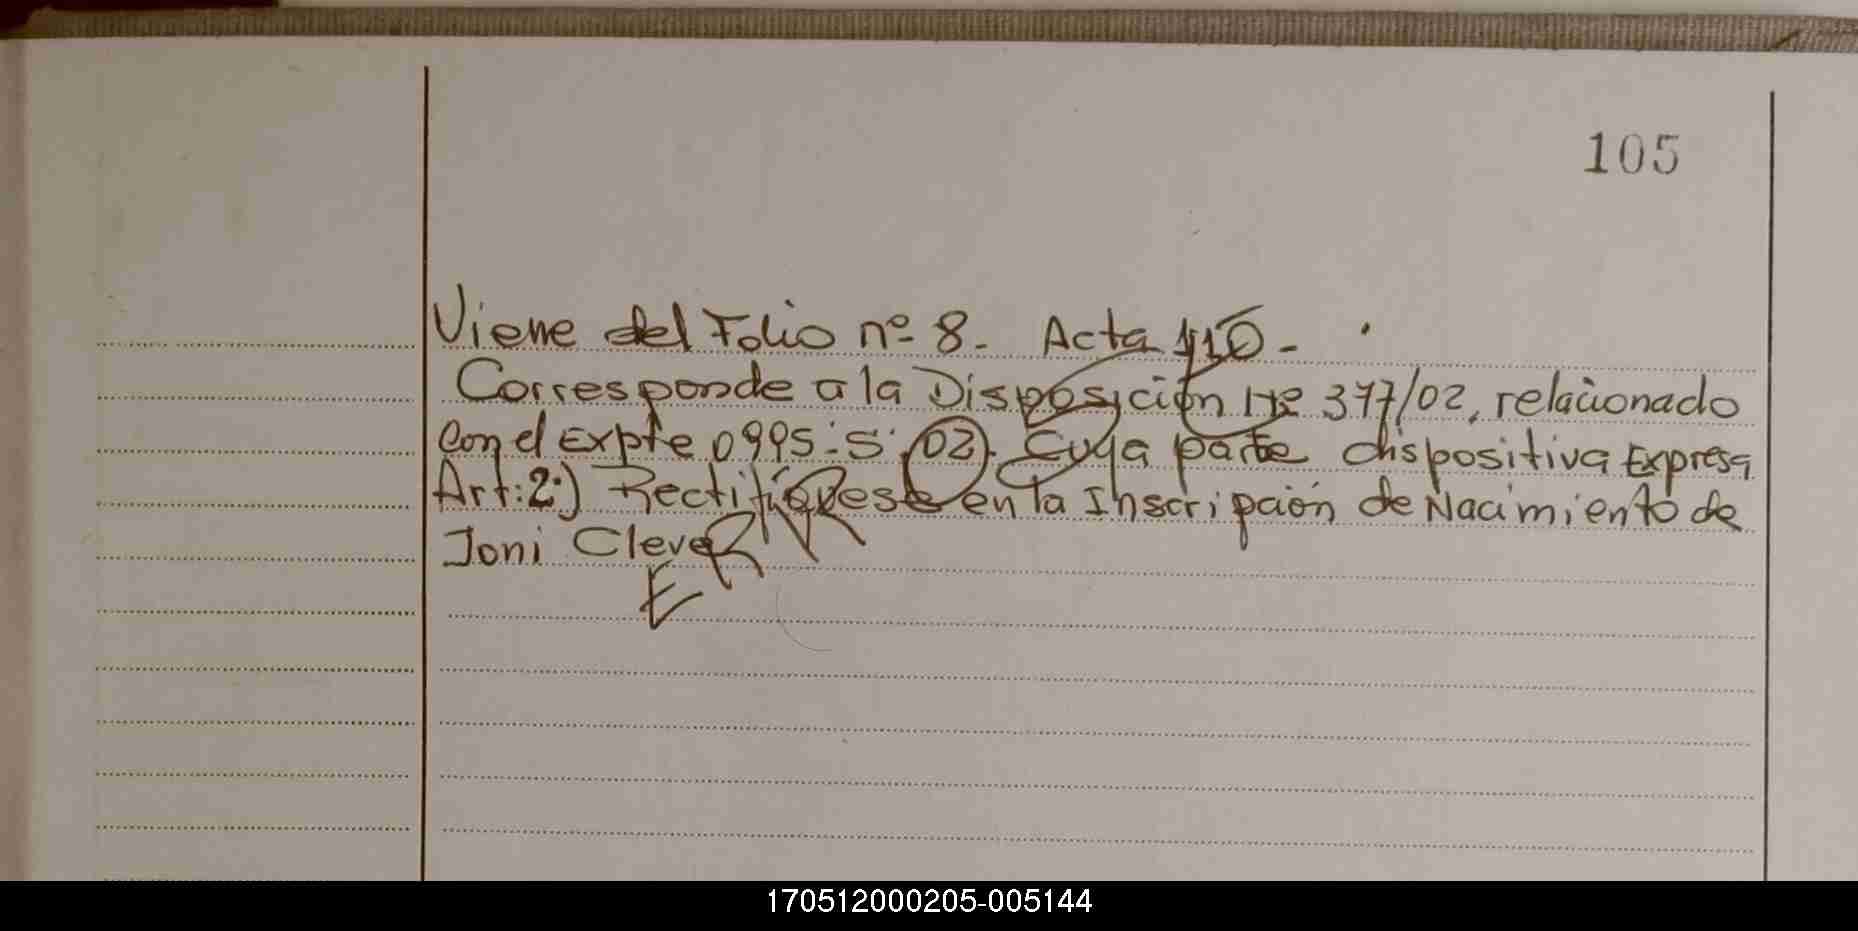 105
Viene del Folio nº 8. Acta 110 -
Corresponde a la Disposición Nº 377/02, relacionado
con el Expte 0995-S-02). Cuya parte dispositiva Expresa
Art:2º) Rectifiquese en la Inscripción de Nacimiento de
Joni Clever
170512000205-005144